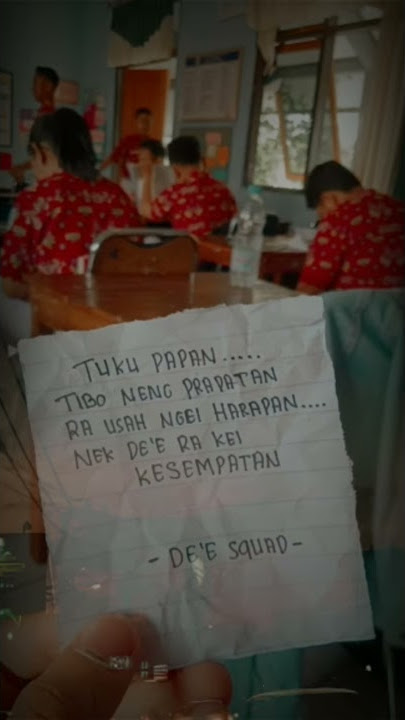 TUKU PAPAN.....
TIBO NENG PRAPATAN
RA USAH NGEI HARAPAN....
NEK DE'E RA KEI
KESEMPATAN
- DE'E SQUAD -